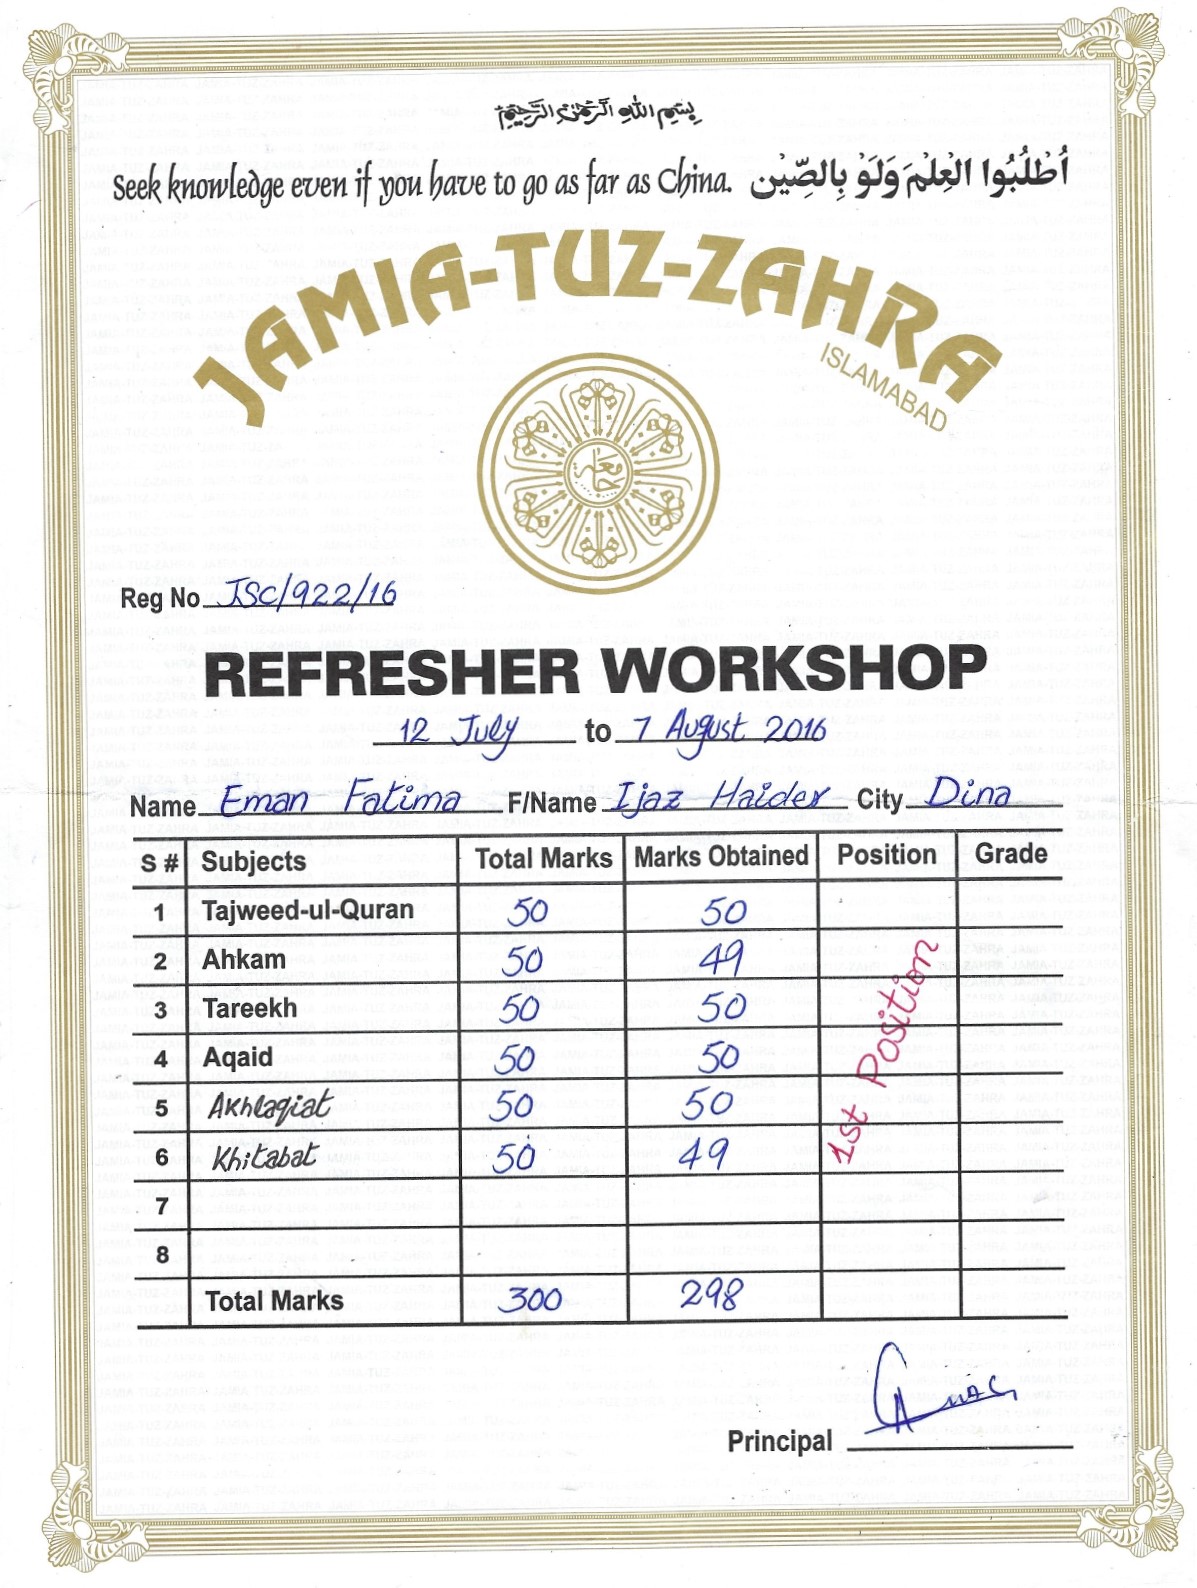 بِسْمِ اللهِ الرَّحْمٰنِ الرَّحِيْمِ
Seek knowledge even if you have to go as far as China. اُطْلُبُوا الْعِلْمَ وَلَوْ بِالصِّيْنِ
JAMIA-TUZ-ZAHRA
ISLAMABAD
Reg No JSC/922/16
REFRESHER WORKSHOP
12 July to 7 August 2016
Name Eman Fatima F/Name Ijaz Haider City Dina
S # Subjects Total Marks Marks Obtained Position Grade
1 Tajweed-ul-Quran 50 50
2 Ahkam 50 49
3 Tareekh 50 50
4 Aqaid 50 50
5 Akhlaqiat 50 50
6 Khitabat 50 49
7
8
1st Position
Total Marks 300 298
Principal